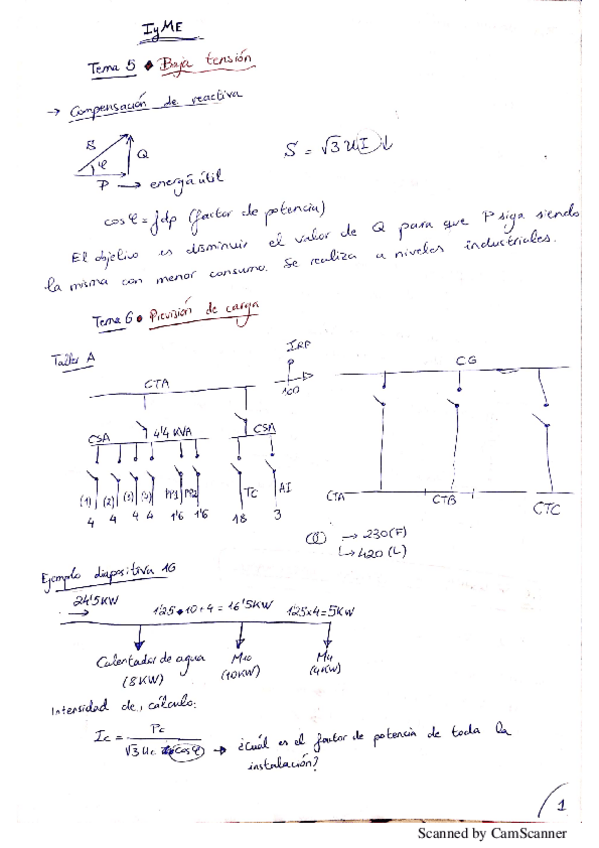 IyME
Tema 5 • Baja tensión
→ Compensación de reactiva
S
Q
φ
P → energía útil
S = √3 U I ↓
cos φ = fdp (factor de potencia)
El objetivo es disminuir el valor de Q para que P siga siendo
la misma con menor consumo. Se realiza a niveles industriales.
Tema 6 • Previsión de carga
Taller A
CTA
CSA
4'4 KVA
CSA
(1) (2) (3)
TC
AI
4 4 4 4 1'6 1'6 18 3
P
100
CG
CTA
CTB
CTC
→ 230 (F)
↳ 420 (L)
Ejemplo diapositiva 16
24'5KW
1'25•10+4 = 16'5KW
1'25x4=5KW
Calentador de agua
(8KW)
M10
(10KW)
M4
(4KW)
Intensidad de cálculo:
Ic = Pc / √3 Uc cosφ → ¿Cuál es el factor de potencia de toda la
instalación?
1
Scanned by CamScanner